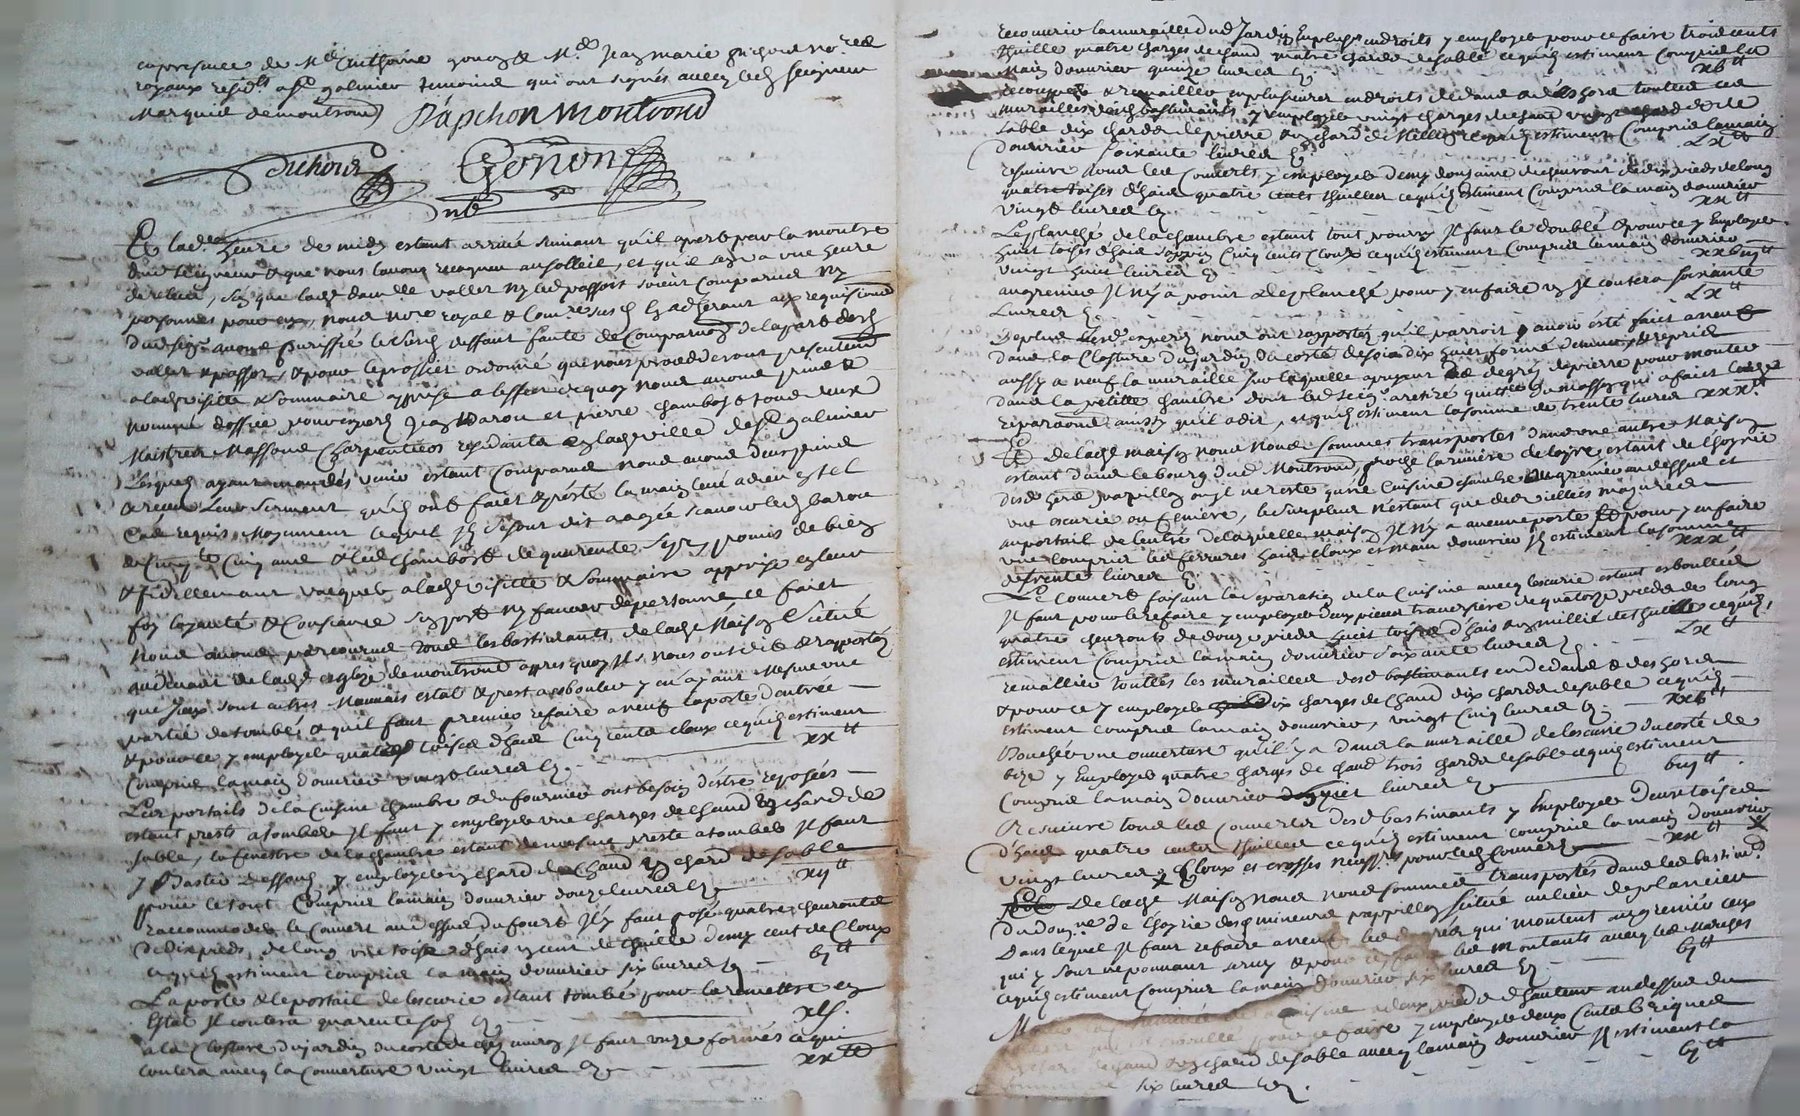 en presence de Me Anthoine gonon & Me Jean marie
royaux resid. a St galmier temoins qui ont signés avecq led. Seigneur
Marquis de montrond
D'apchon Montrond
Duhour
Gonon
Et lad. heure de midy estant arrivé suivant qu'il apert par la montre
dud. seigneur & que nous l'avons recogneu au solleil, et qu'il sera une heure
de relevée, sans que lad. dam.lle vallet ny led. passot soient comparus ny
personnes pour eux, nous no.re royal & com.re susd. adherant aux requisitions
dud. seig.r avons deffaut faute de comparoir de la part desd.
vallet & passot, & pour le proffict ordonné que nous procedderons presentement
a lad. visitte & sommaire apprise a l'effect de quoy nous avons prins &
nommé d'office pour experts Jean Baron et pierre chambost tous deux
Maistres Massons charpentiers residants en lad. ville de St galmier
Lesquels ayant mandés venir estant comparus nous avons d'eux prins
& receu leur serment qu'ils ont faict & presté la main levé a dieu & tel
cas requis, Moyennant lequel ils se sont dit aagés scavoir led. baron
de cinq.te cinq ans & led. chambost de quarente six, & promis de bien
& fidellemant vacquer a lad. visitte & sommaire apprise en leur
foy loyauté & consiance sans port ny faveur de personne ce faict
nous avons parcourus tous les bastimants de lad. Maison scitué
au devant de lad. eglize de montrond appres quoy ils nous ont dit & rapporté
que iceux sont en tres Mauvais estat & prest a esbouler y en ayant Mesme une
partie de tombés & qu'il faut premier refaire a neuf la porte d'entrée
& pour ce y employer quatre toises d'hais cinq cents cloux ce qu'ils estiment
compris la main d'ouvrier vingt livres cy - xx tt
Les portails de la cuisine chambre & du fournier ont besoin d'estre reposés
estant prests a tomber il faut y employer une charges de chaud un chard de
sable, la fenestre de la chambre estant de mesme preste a tomber il faut
y bastir dessous & employer un chard de chaud un chard de sable
pour le tout compris la main d'ouvrier douze livres cy - xij tt
raccommoder le couvert au dessus du fourt il y faut posé quatre chevrons
de dix pieds de long une toise d'hais un cent de thuille demy cent de cloux
ce qu'ils estiment compris la main d'ouvrier six livres cy - vj tt
La porte & le portail de l'escurie estant tombé pour la remettre en
Estat il coutera quarente sols cy - xls.
a la closture du jardin du costé de il faut unze formes ce qui
coutera avecq la couverture vingt livres cy - xx tt
recouvrir la muraille dud. Jardin en plus.rs endroits y employer pour ce faire trois cents
thuille quatre charges de chaud quatre chards de sable ce qu'ils estiment compris la
Main d'ouvrier quinze livres cy - xv tt
recouper & remailler en plusieurs endroits dedans & dehors toutes les
murailles desd. bastimants y employer vingt charges de chaud vingt chards de
sable dix chards de pierre ce qu'ils estiment compris la main
d'ouvrier soixante livres cy - Lx tt
resuivre tous les couverts y employer demy douzaine de chevrons de dix pieds de long
quatre toises d'hais quatre cents thuilles ce qu'ils estiment compris la main d'ouvrier
vingt livres cy - xx tt
Le planché de la chambre estant tout pourry il faut le doublé & pour ce y Employer
huit toises d'hais sappin cinq cents cloux ce qu'ils estiment compris la main d'ouvrier
vingt huit livres cy - xxviij tt
au grenier il n'y a point de planché pour y en faire un il coutera soixante
Livres cy - Lx tt
De plus lesd. experts nous ont rapportés qu'il parroit y avoir esté fait a neuf
dans la closture du jardin du costé de dix huict formes & reprins
aussy a neuf la muraille sur laquelle apuyent les degrés de pierre pour monter
dans la petitte chambre dont led. seig.r a retiré quitt.ce du masson qui a faict lesd.
reparaôns ainsy qu'il a dit, et qu'ils estiment la somme de trente livres xxx tt
Et de lad. maison nous nous sommes transportés dans une autre Maison
estant dans le bourg dud. Montrond, proche la riviere de loyre, estant de l'hoyrie
desd. gens papillon ou il ne reste qu'une cuisine chambre un grenier au dessus et
une escurie ou feniere, le surplus n'estant que des vieilles mazures
au portail de l'entré de laquelle maison il n'y a aucune porte & pour y en faire
une compris les ferrures hais cloux et main d'ouvrier ils estiment la somme
de trente livres cy - xxx tt
Le couvert faisant la separation de la cuisine avecq l'escurie estant esboullés
il faut pour le refaire y employer deux pieces traversiere de quatorze pieds de long
quatre chevrons de douze pieds huict toises d'hais un millié de thuille ce qu'ils
estiment compris la main d'ouvrier soixante livres cy - Lx tt
remallier touttes les murailles desd. bastimants en dedans & dehors
& pour ce y employer dix charges de chaud dix chards de sable ce qu'ils
estiment compris la main d'ouvrier, vingt cinq livres cy - xxv tt
Bouché une ouverture qu'il y a dans la muraille de l'escurie du costé de
bize y Employer quatre charges de chaud trois chards de sable ce qu'ils estiment
compris la main d'ouvrier livres cy - viij tt
Resuivre tous les couverts desd. bastimants y Employer deux toises
d'hais quatre cents thuilles ce qu'ils estiment compris la main d'ouvrier
vingt livres cy - xx tt
x cloux et crosses necess.res pour lesd. couverts
De lad. Maison nous nous sommes transportés dans les bastim.ts
du dom.ne de l'hoyrie desd. mineurs pappillon scitué au lieu de plancieu
dans lequel il faut refaire a neuf les degrés qui montent au grenier ceux
qui y sont ne pouvant servir & pour ce faire les montants avecq les marches
ce qu'ils estiment compris la main d'ouvrier six livres cy - vj tt
cuisine deux pieds d'hauteur au dessus du
pour ce faire y employer deux cents briques
chard de sable avecq la main d'ouvrier ils estiment la
somme de six livres cy. - vj tt